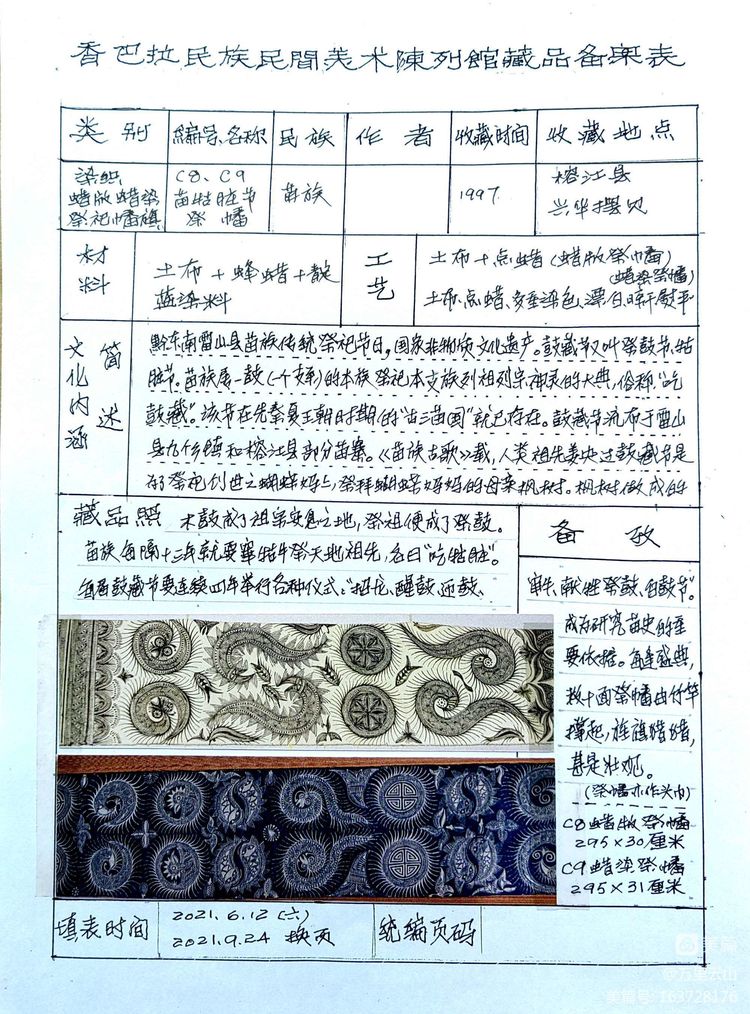 香巴拉民族民間美术陳列館藏品备案表
类别 编号、名称 民族 作者 收藏时间 收藏地点
染织
蜡版蜡染
祭祀幡旗
C8、C9
苗牯脏节
祭幡
苗族
1997
榕江县
兴华摆贝
材料
土布+蜂蜡+靛
蓝染料
工艺
土布+点蜡(蜡版祭幡)
(蜡染祭幡)
土布、点蜡、多重染色、漂白、晾干、熨平
文化内涵 简述
黔东南雷山县苗族传统祭祀节日,国家非物质文化遗产。鼓藏节又叫祭鼓节、牯
脏节。苗族属一鼓(一个支系)的本族祭祀本支族列祖列宗神灵的大典,俗称“吃
鼓藏”。该节在先秦夏王朝时期的“古三苗国”就已存在。鼓藏节流布于雷山
县九个乡镇和榕江县部分苗寨。《苗族古歌》载,人类祖先姜央过鼓藏节是
为了祭祀创世之蝴蝶妈妈,祭拜蝴蝶妈妈的母亲枫树。枫树做成的
藏品照 木鼓成了祖宗安息之地,祭祖便成了祭鼓。
苗族每隔十三年就要宰牯牛祭天地祖先,名曰“吃牯脏”。
每届鼓藏节要连续四年举行各种仪式:“招龙、醒鼓、迎鼓、
备考
审牛、献牲祭鼓、白鼓节”。
成为研究苗史的重
要依据。每逢盛典,
数十面祭幡由竹竿
撑起,旌旗猎猎,
甚是壮观。
(祭幡亦作头巾)
C8蜡版祭幡
295×30厘米
C9蜡染祭幡
295×31厘米
填表时间
2021.6.12(六)
2021.9.24 换页
统编页码
美篇
@万里云山
美篇号:163728176